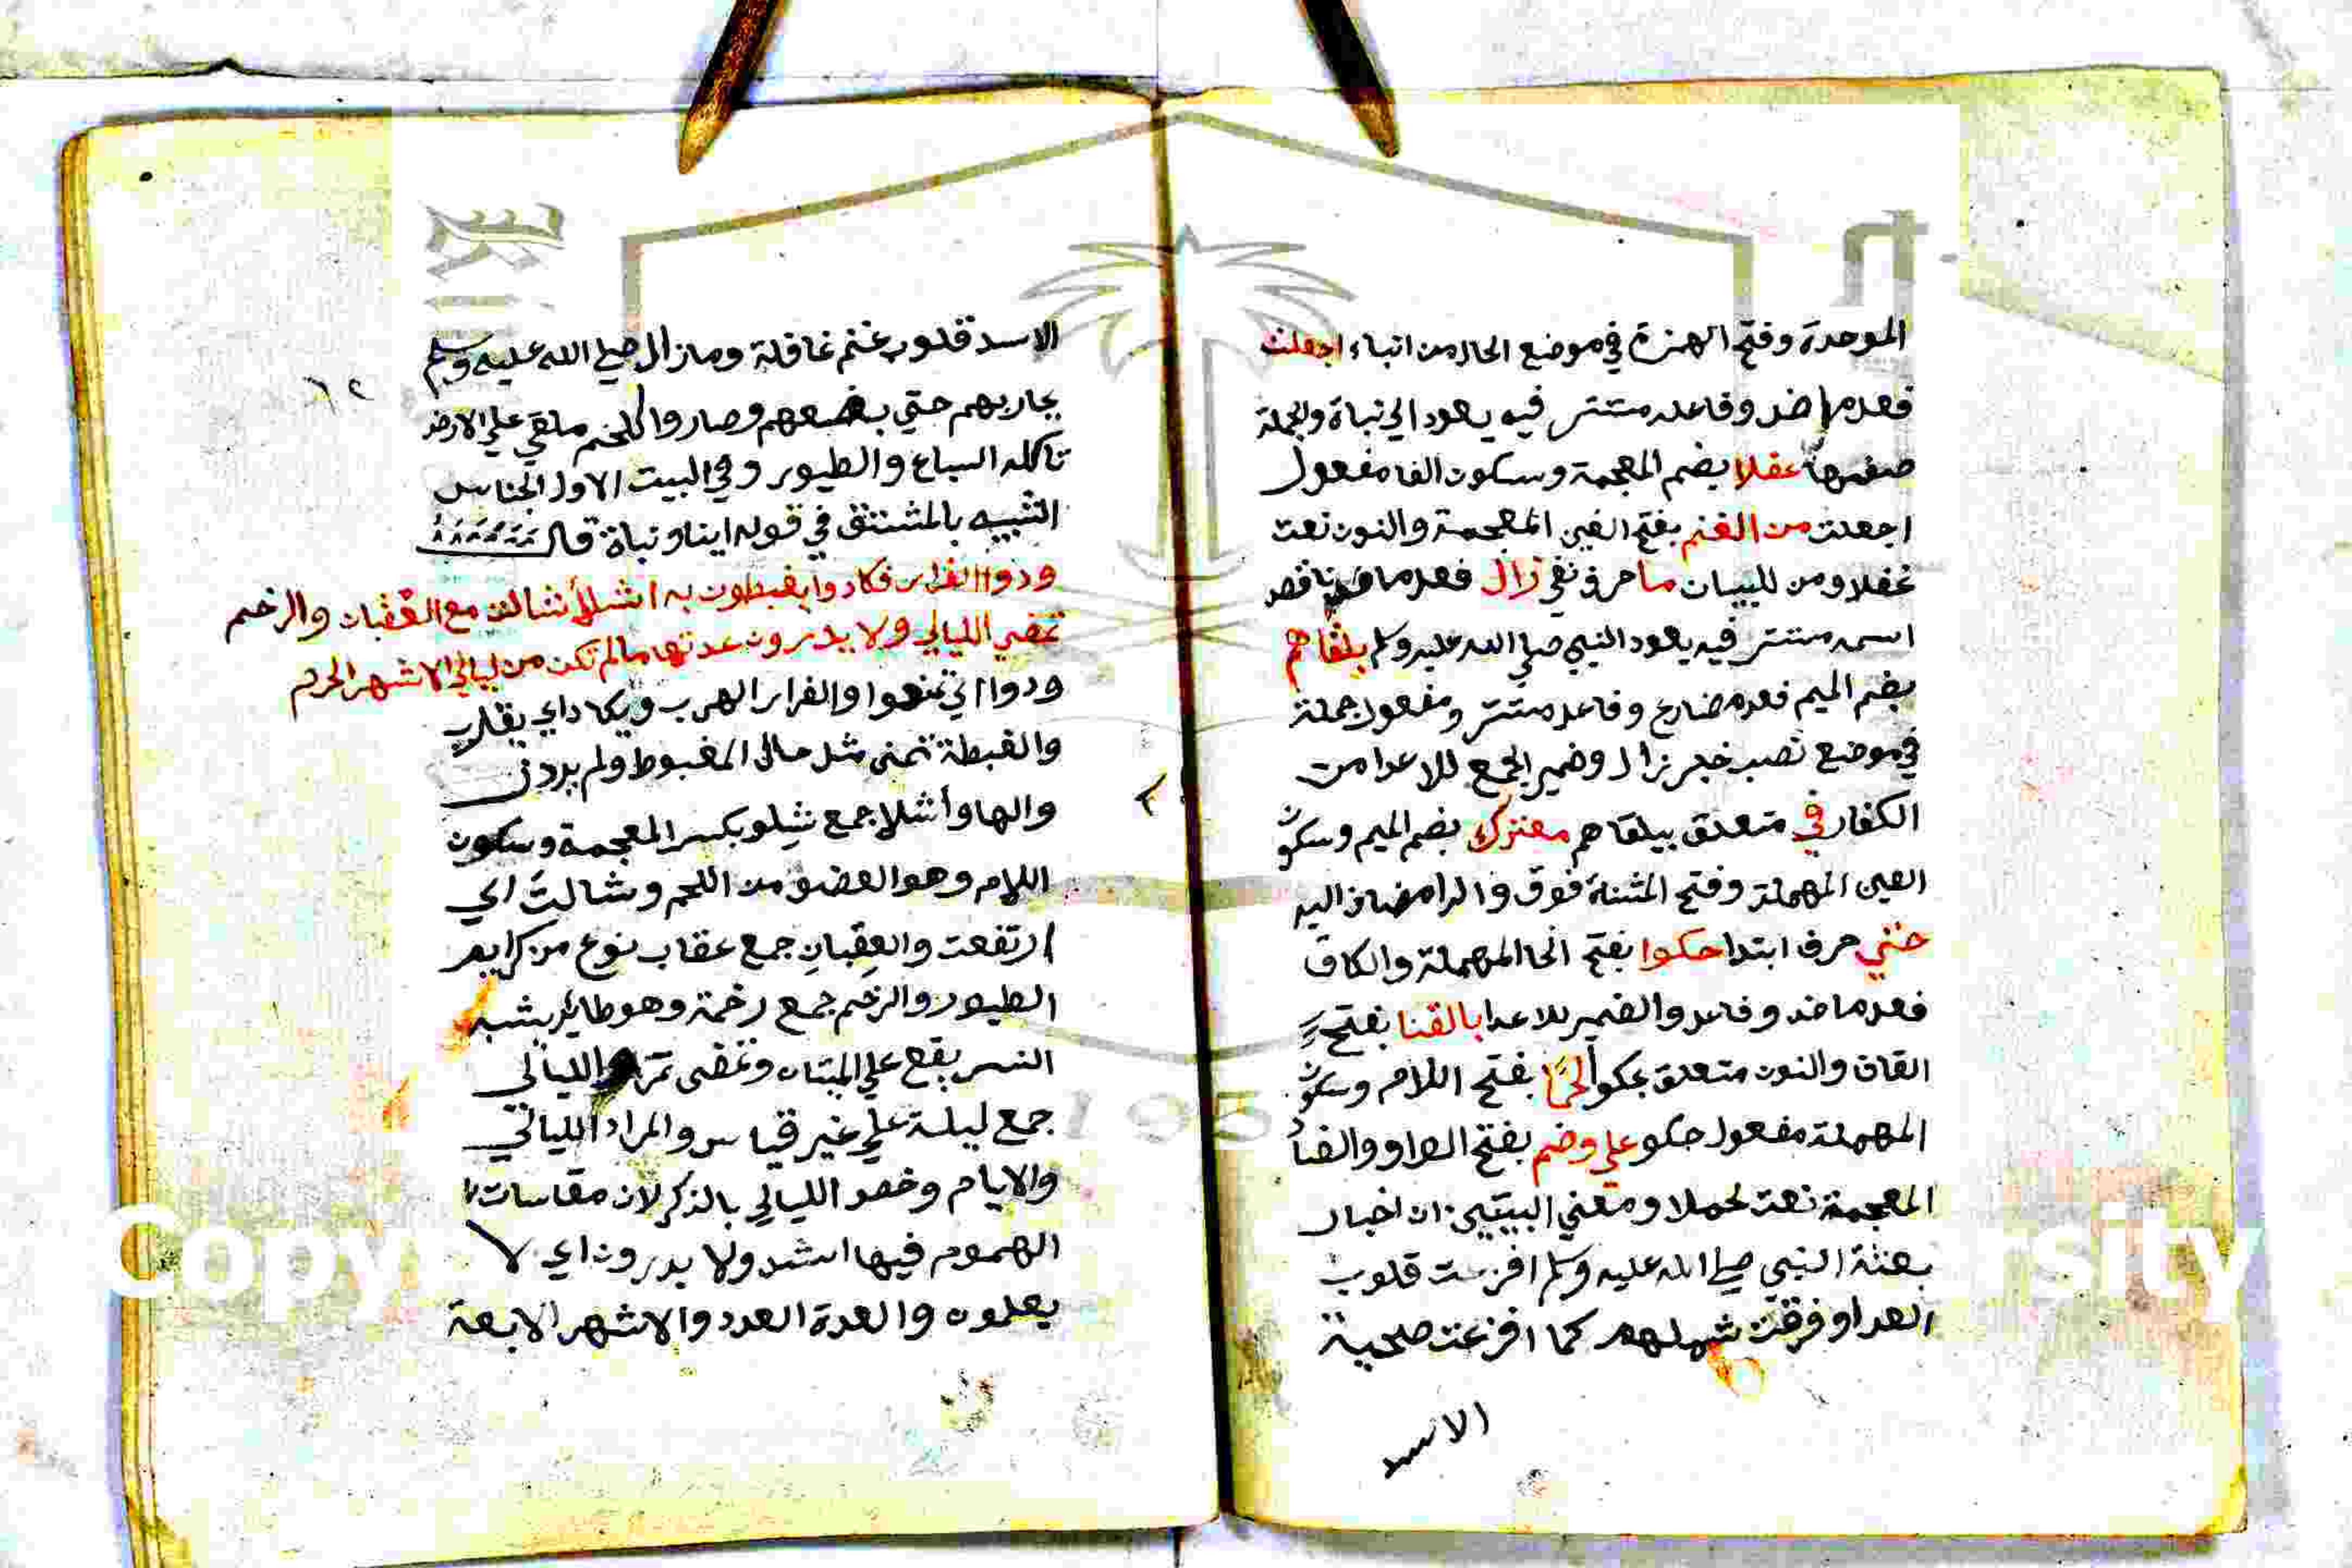 الموحدة وفتح الهمزة في موضع الحال من انباء اجفلت
فعل ماض وفاعله مستتر فيه يعود الي نباة والجملة
صفتها غفلا بضم المعجمة وسكون الفا مفعول
اجفلت من الغنم بفتح الغين المعجمة والنون نعت
غفلا ومن للبيان ما حرف نفي زال فعل ماض ناقص
اسمه مستتر فيه يعود النبي صلي الله عليه وسلم يلقاهم
بضم الميم فعل مضارع وفاعله مستتر ومفعول جملة
في موضع نصب خبر زال وضمير الجمع للاعدا من
الكفار في متعلق بيلقاهم معترك بضم الميم وسكون
العين المهملة وفتح المثناة فوق والرا مضاف اليه
حتي حرف ابتدا حكوا بفتح الحا المهملة والكاف
فعل ماض وفاعل والضمير للاعدا بالقنا بفتح
القاف والنون متعلق بحكوا لحما بفتح اللام وسكون
المهملة مفعول حكو علي وضم بفتح الواو والضاد
المعجمة نعت لحملا ومعني البيتين ان اخبار
بعثة النبي صلي الله عليه وسلم افزعت قلوب
العدا وفرقت شملهم كما افزعت صحية
الاسد
الاسد قلوب غنم غافلة وما زال صلي الله عليه وسلم
يحاربهم حتي بضعهم وصاروا كلحم ملقي علي الارض
تاكله السباع والطيور وفي البيت الاول الجناس
الشبيه بالمشتق في قوله انبا ونباة قال
ودوا الفرار فكادوا يغبطون به اشلا شالت مع العقبان والرخم
تمضي الليالي ولا يدرون عدتها ما لم تكن من ليالي الاشهر الحرم
ودوا اي تمنوا والفرار الهرب ويكاد اي يقارب
والغبطة تمني مثل حال المغبوط ولم يرد ان
والها واشلا جمع شِلو بكسر المعجمة وسكون
اللام وهو العضو من اللحم وشالت اي
ارتفعت والعِقبانِ جمع عقاب نوع من كرايم
الطيور والرخم جمع رخمة وهو طاير يشبه
النسر يقع علي الميتات وتمضي تمر الليالي
جمع ليلة علي غير قياس والمراد الليالي
والايام وخص الليالي بالذكر لان مقاسات
الهموم فيها اشد ولا يدرون اي لا
يعلمون والعدة العدد والاشهر الاربعة